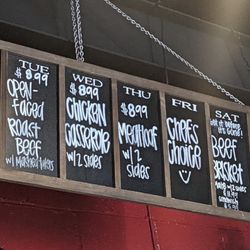 TUE
$8.99
OPEN-
FACED
ROAST
BEEF
W/ MASHED TATERS
WED
$8.99
CHICKEN
CASSEROLE
W/ 2 SIDES
THU
$8.99
MEATLOAF
W/ 2
SIDES
FRI
CHEF'S
CHOICE
SAT
BEEF
BRISKET